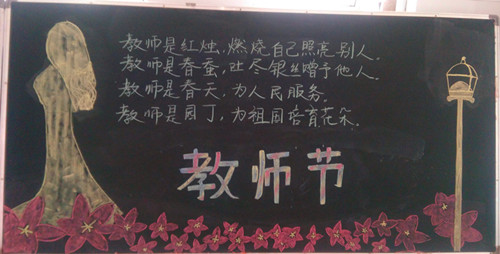 教师是红烛，燃烧自己照亮别人。
教师是春蚕，吐尽银丝赠予他人。
教师是春天，为人民服务。
教师是园丁，为祖国培育花朵。
教师节